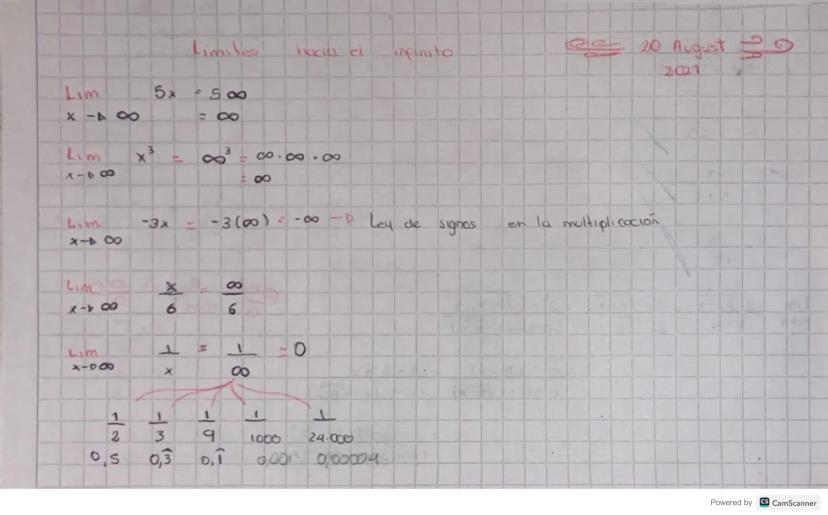 Limites hacia el infinito
20 August
2021
Lim 5x = 5∞
x → ∞ = ∞
Lim x³ = ∞³ = ∞·∞·∞
x → ∞ = ∞
Lim -3x = -3(∞) = -∞ → Ley de signos en la multiplicación
x → ∞
Lim x/6 = ∞/6
x → ∞
Lim 1/x = 1/∞ = 0
x → ∞
1/2 1/3 1/9 1/1000 1/24.000
0,5 0,3̂ 0,1̂ 0,001 0,00004
Powered by CS CamScanner